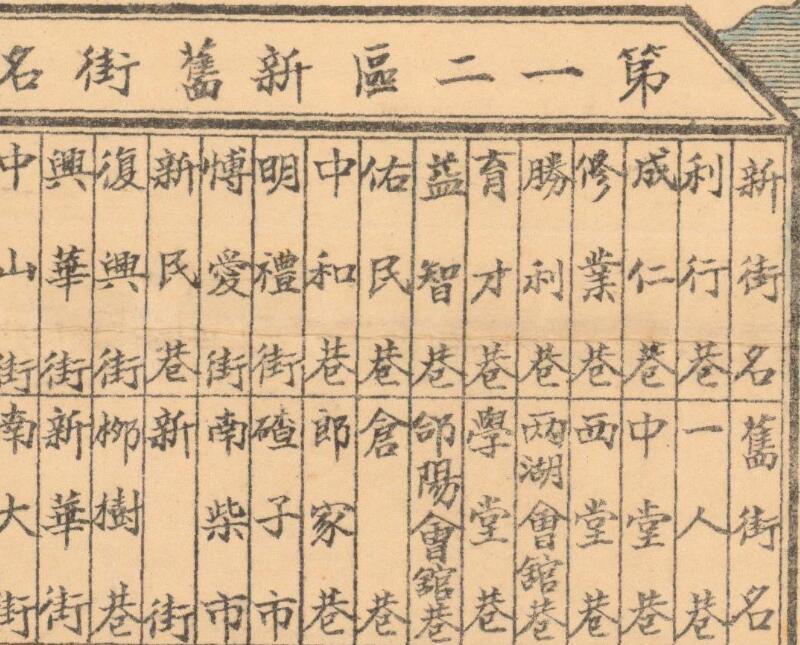 第一二區新舊街名
新街名 舊街名
利行巷 一人巷
成仁巷 中堂巷
修業巷 西堂巷
勝利巷 兩湖會館巷
育才巷 學堂巷
益智巷 郃陽會舘巷
佑民巷 倉巷
中和巷 郎家巷
明禮街 碴子市
博愛街 南柴市
新民巷 新街
復興街 柳樹巷
興華街 新華街
中山街 南大街